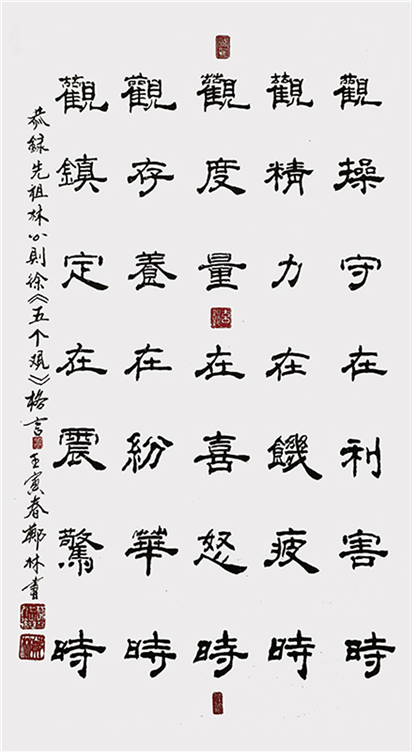 觀操守在利害時
觀精力在饑疲時
觀度量在喜怒時
觀存養在紛華時
觀鎮定在震驚時
恭録先祖林公則徐《五个观》格言 壬寅春鄭林書